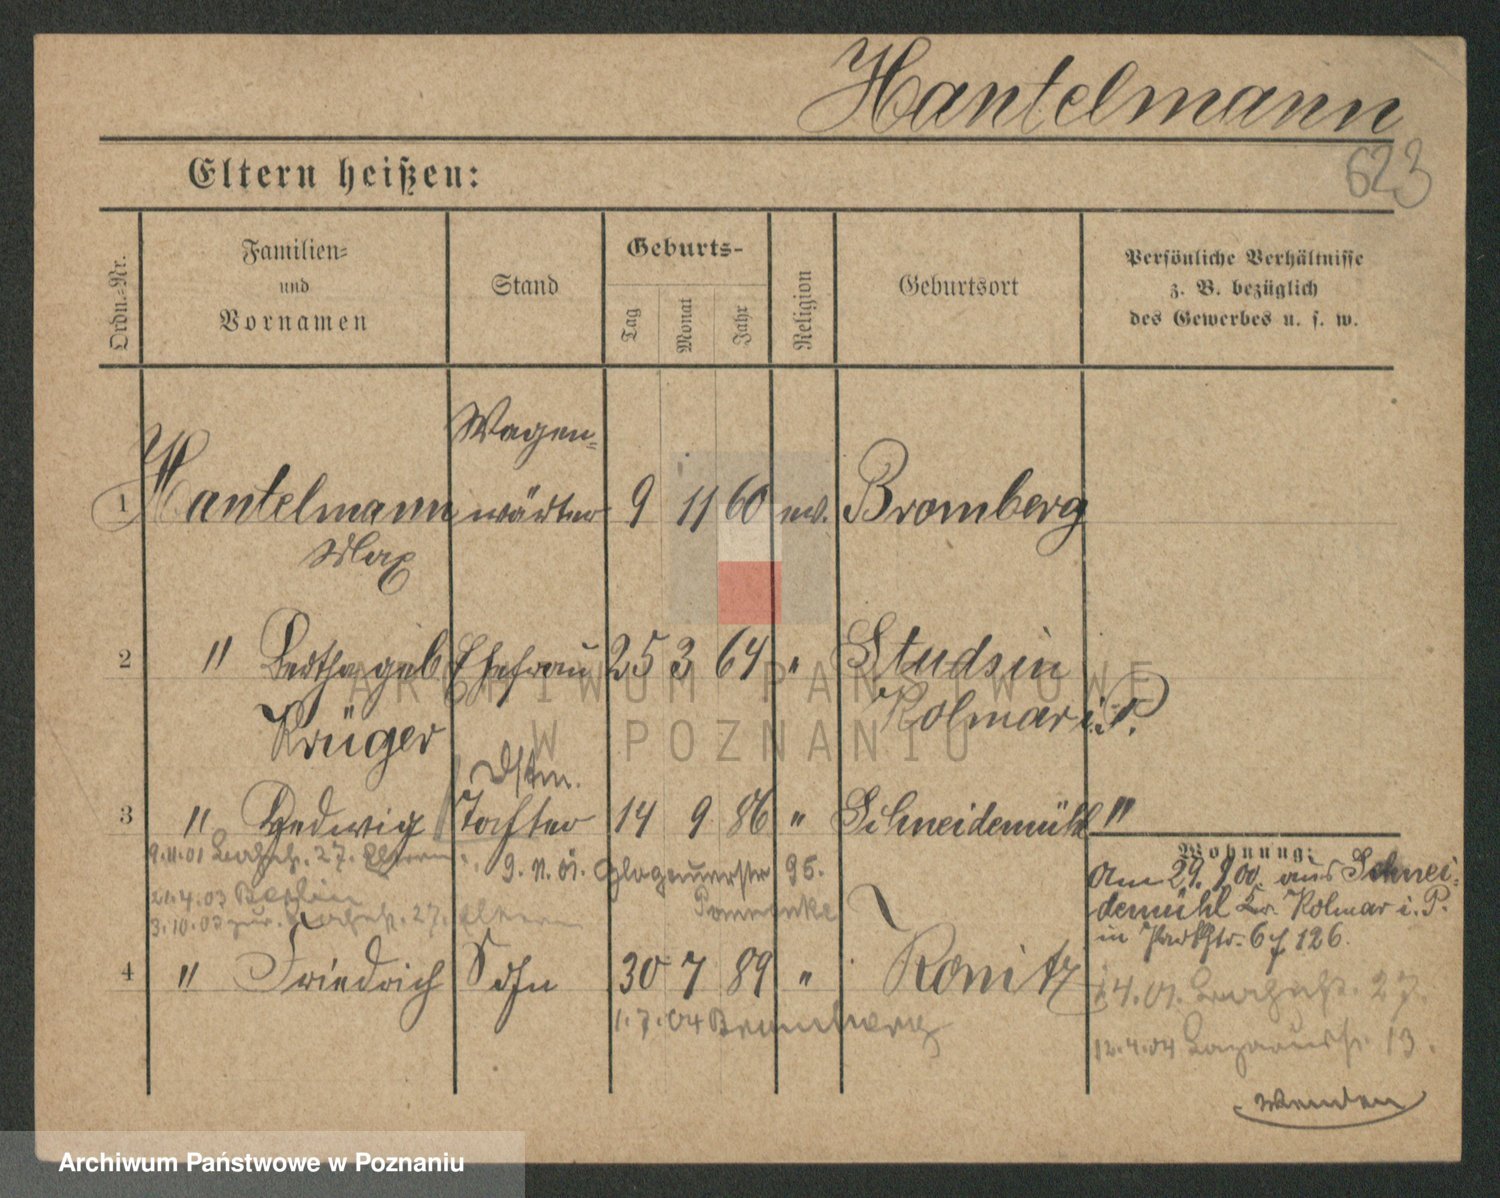 Hantelmann
623
Eltern heißen:
Ordn.-Nr.
Familien-
und
Vornamen
Stand
Geburts-
Tag
Monat
Jahr
Religion
Geburtsort
Persönliche Verhältnisse
z. B. bezüglich
des Gewerbes u. s. w.
Wagen-
1 Hantelmann wärter 9 11 60 ev. Bromberg
Max
2 " Bertha geb. Ehefrau 25 3 64 " Studsin
Krüger Kolmar i. P.
3 " Hedwig Tochter 14 9 86 " Schneidemühl "
Wohnung:
9.11.01 27. Eltern 9.11.01. Glogauerstr 95.
21.4.03 Berlin
3.10.03 zur. 27. Eltern
Am 29. 9 00. aus Schnei-
demühl Kr. Kolmar i. P.
in Parkstr. 6 f 126.
4 " Friedrich Sohn 30 7 89 " Konitz
1.4.01. 27.
1.7.04 Bromberg
12.4.04 Lazarusstr. 13.
Wenden
ARCHIWUM PAŃSTWOWE
W POZNANIU
Archiwum Państwowe w Poznaniu